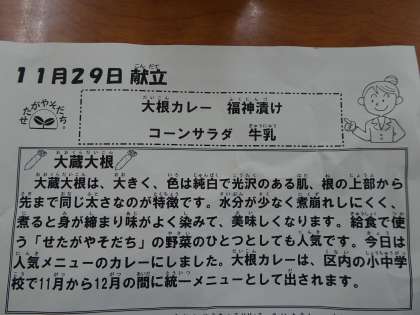 11月29日 献立
せたがやそだち。
大根カレー 福神漬け
コーンサラダ 牛乳
大蔵大根
大蔵大根は、大きく、色は純白で光沢のある肌、根の上部から
先まで同じ太さなのが特徴です。水分が少なく煮崩れしにくく、
煮ると身が締まり味がよく染みて、美味しくなります。給食で使
う「せたがやそだち」の野菜のひとつとしても人気です。今日は
人気メニューのカレーにしました。大根カレーは、区内の小中学
校で11月から12月の間に統一メニューとして出されます。